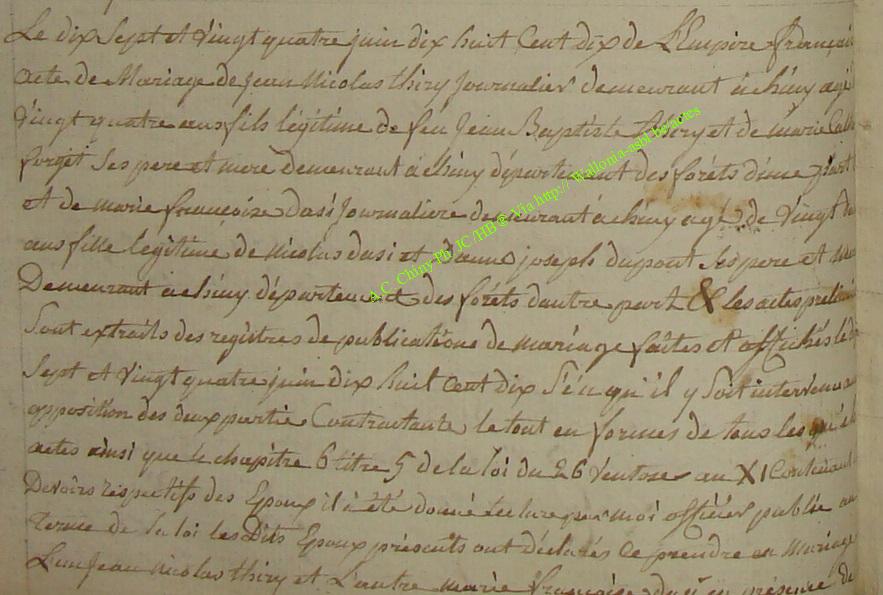 Le dix sept et vingt quatre juin dix huit cent dix de L'Empire français
acte de Mariage de jean Nicolas thiry journalier demeurant a chiny agé
vingt quatre ans fils légitime de feu Jean Baptiste thiry et de marie
forget ses pere et mere demeurant a chiny département des forêts d'une part
et de marie françoise dasi journaliere demeurant a chiny agé de vingt
ans fille légitime de nicolas dasi et d'anne joseph dupont ses pere et mere
Demeurant a chiny département des forêts d'autre part & les actes
Sont extraits des registres de publications de mariage faites et affichés le
Sept et vingt quatre juin dix huit cent dix sen qu'il y soit intervenu
opposition des deux partie Contractante, le tout en formes de tous les
actes ainsi que le chapitre 6 titre 5 de la loi du 26 Ventose an XI Contenant
Devoirs respectifs des Epoux il à été donné lecture par moi officier publie au
terme de la loi les Dits Epoux présents ont déclarés ce prendre en mariage
L'un jean nicolas thiry et L'autre marie françoise dasi en présence de
A.C. Chiny Ph JC /HB ® Via http:// Wallonia-asbl.be/actes